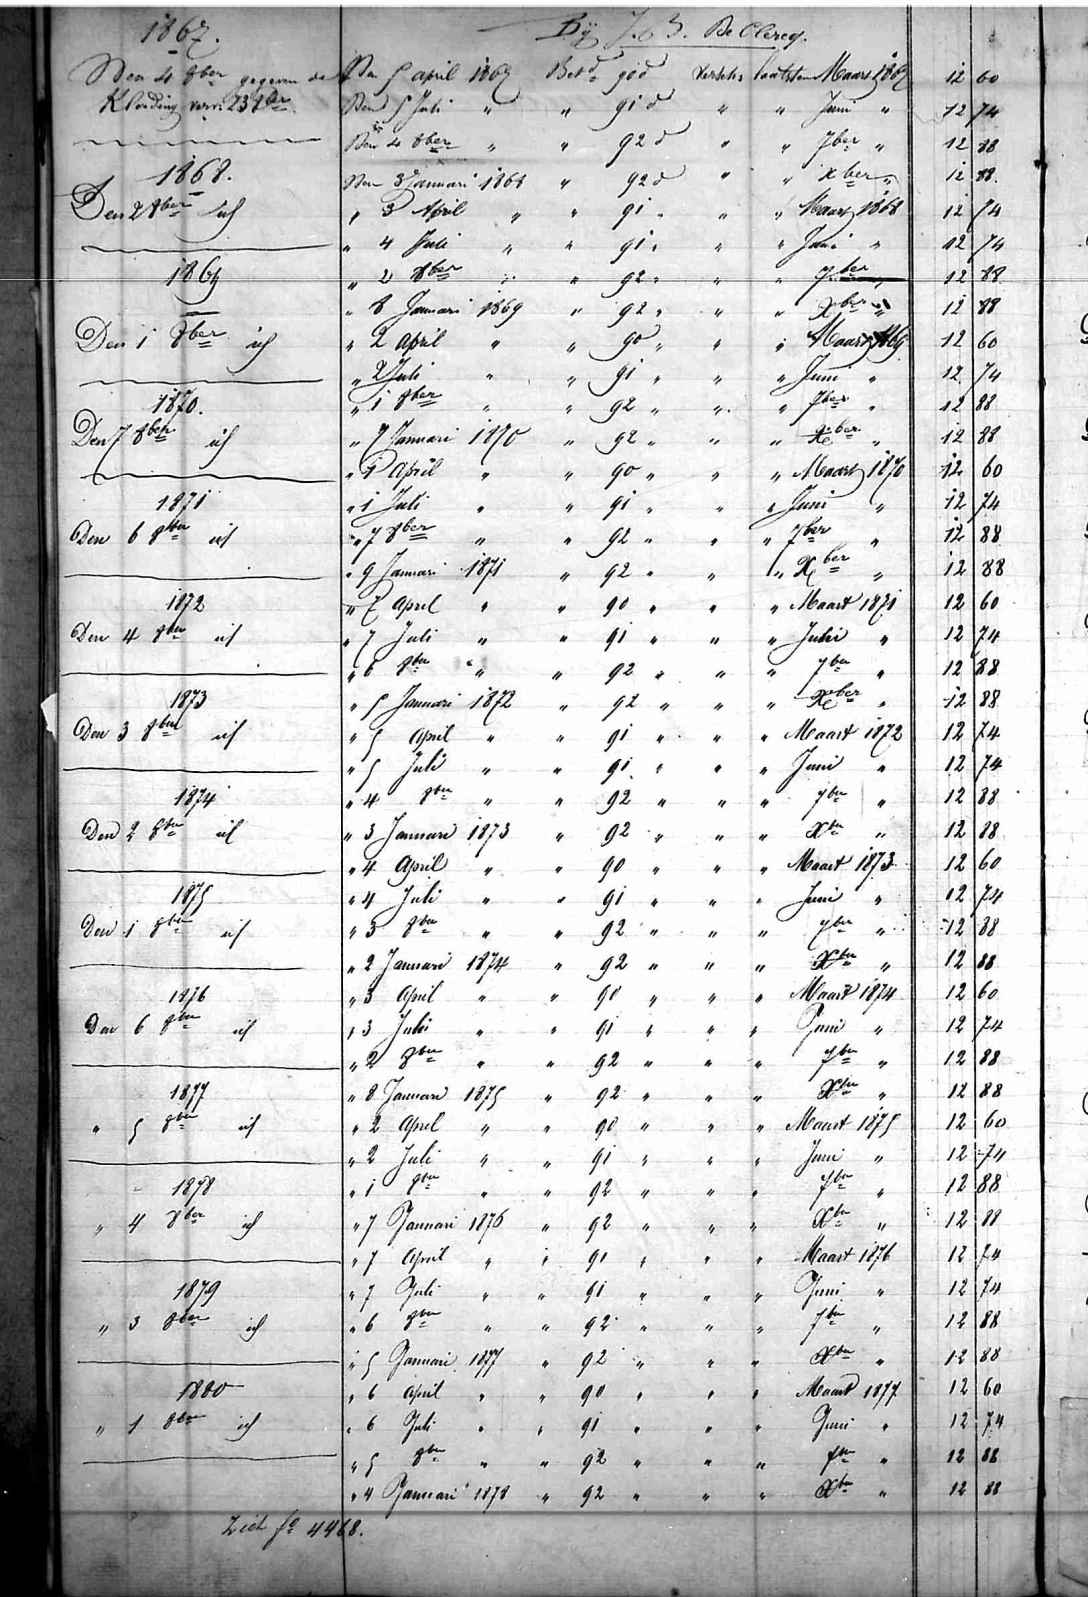 1867.
By J. B. De Clercq.
Den 4 8ber gegeven de
Kleeding voor 23 8ber
1868.
Den 2 8ber ich
1869
Den 1 8ber ich
1870.
Den 7 8ber ich
1871
Den 6 8ber ich
1872
Den 4 8ber ich
1873
Den 3 8ber ich
1874
Den 2 8ber ich
1875
Den 1 8ber ich
1876
Den 6 8ber ich
1877
" 5 8ber ich
1878
" 4 8ber ich
1879
" 3 8ber ich
1880
" 1 8ber ich
Den 5 april 1867 Betd 90 d versch: laatsten Maart 1867 12 60
Den 5 Juli " " 91 d " " Juni " 12 74
Den 4 8ber " " 92 d " " 7ber " 12 88
Den 3 Januari 1868 " 92 d " " Xber " 12 88
" 3 April " " 91 " " " Maart 1868 12 74
" 4 Juli " " 91 " " " Juni " 12 74
" 2 8ber " " 92 " " " 7ber " 12 88
" 8 Januari 1869 " 92 " " " Xber " 12 88
" 2 April " " 90 " " " Maart 1869 12 60
" 2 Juli " " 91 " " " Juni " 12 74
" 1 8ber " " 92 " " " 7ber " 12 88
" 7 Januari 1870 " 92 " " " Xber " 12 88
" 1 April " " 90 " " " Maart 1870 12 60
" 1 Juli " " 91 " " " Juni " 12 74
" 7 8ber " " 92 " " " 7ber " 12 88
" 9 Januari 1871 " 92 " " " Xber " 12 88
" 7 April " " 90 " " " Maart 1871 12 60
" 7 Juli " " 91 " " " Juni " 12 74
" 6 8ber " " 92 " " " 7ber " 12 88
" 5 Januari 1872 " 92 " " " Xber " 12 88
" 5 April " " 91 " " " Maart 1872 12 74
" 5 Juli " " 91 " " " Juni " 12 74
" 4 8ber " " 92 " " " 7ber " 12 88
" 3 Januari 1873 " 92 " " " Xber " 12 88
" 4 April " " 90 " " " Maart 1873 12 60
" 4 Juli " " 91 " " " Juni " 12 74
" 3 8ber " " 92 " " " 7ber " 12 88
" 2 Januari 1874 " 92 " " " Xber " 12 88
" 3 April " " 90 " " " Maart 1874 12 60
" 3 Juli " " 91 " " " Juni " 12 74
" 2 8ber " " 92 " " " 7ber " 12 88
" 8 Januari 1875 " 92 " " " Xber " 12 88
" 2 April " " 90 " " " Maart 1875 12 60
" 2 Juli " " 91 " " " Juni " 12 74
" 1 8ber " " 92 " " " 7ber " 12 88
" 7 Januari 1876 " 92 " " " Xber " 12 88
" 7 April " " 91 " " " Maart 1876 12 74
" 7 Juli " " 91 " " " Juni " 12 74
" 6 8ber " " 92 " " " 7ber " 12 88
" 5 Januari 1877 " 92 " " " Xber " 12 88
" 6 April " " 90 " " " Maart 1877 12 60
" 6 Juli " " 91 " " " Juni " 12 74
" 5 8ber " " 92 " " " 7ber " 12 88
" 4 Januari 1878 " 92 " " " Xber " 12 88
Ziet fo 4468.